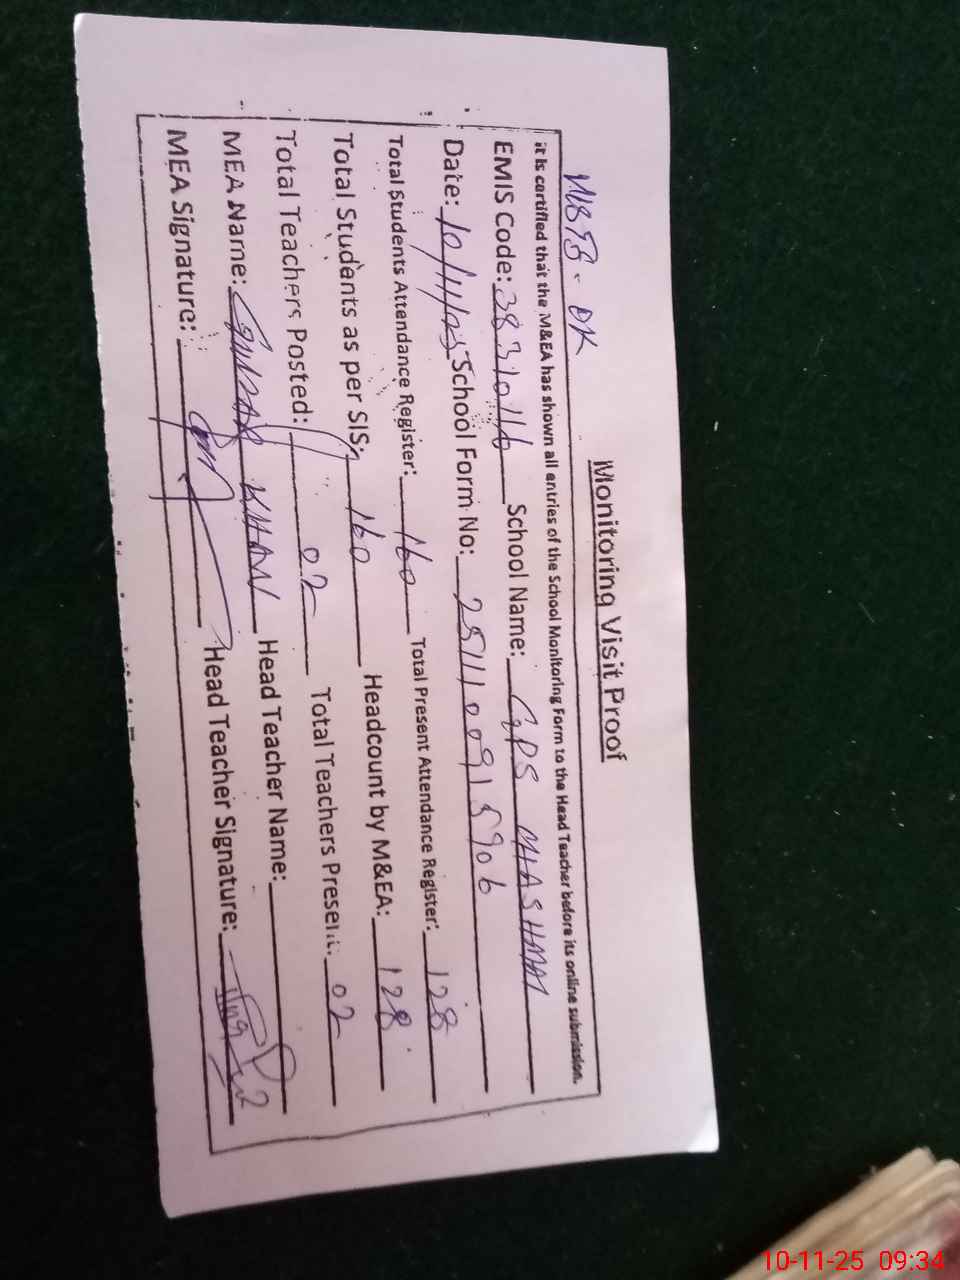 Monitoring Visit Proof
OK
it is certified that the M&EA has shown all entries of the School Monitoring Form to the Head Teacher before its online submission.
EMIS Code: 38310116 School Name: GPS
Date: 10/11/25 School Form No: 2511100915906
Total Students Attendance Register: 160 Total Present Attendance Register: 128
Total Students as per SIS: 160 Headcount by M&EA: 128
Total Teachers Posted: 02 Total Teachers Present: 02
MEA Name: KHAN Head Teacher Name:
MEA Signature: Head Teacher Signature:
10-11-25 09:34